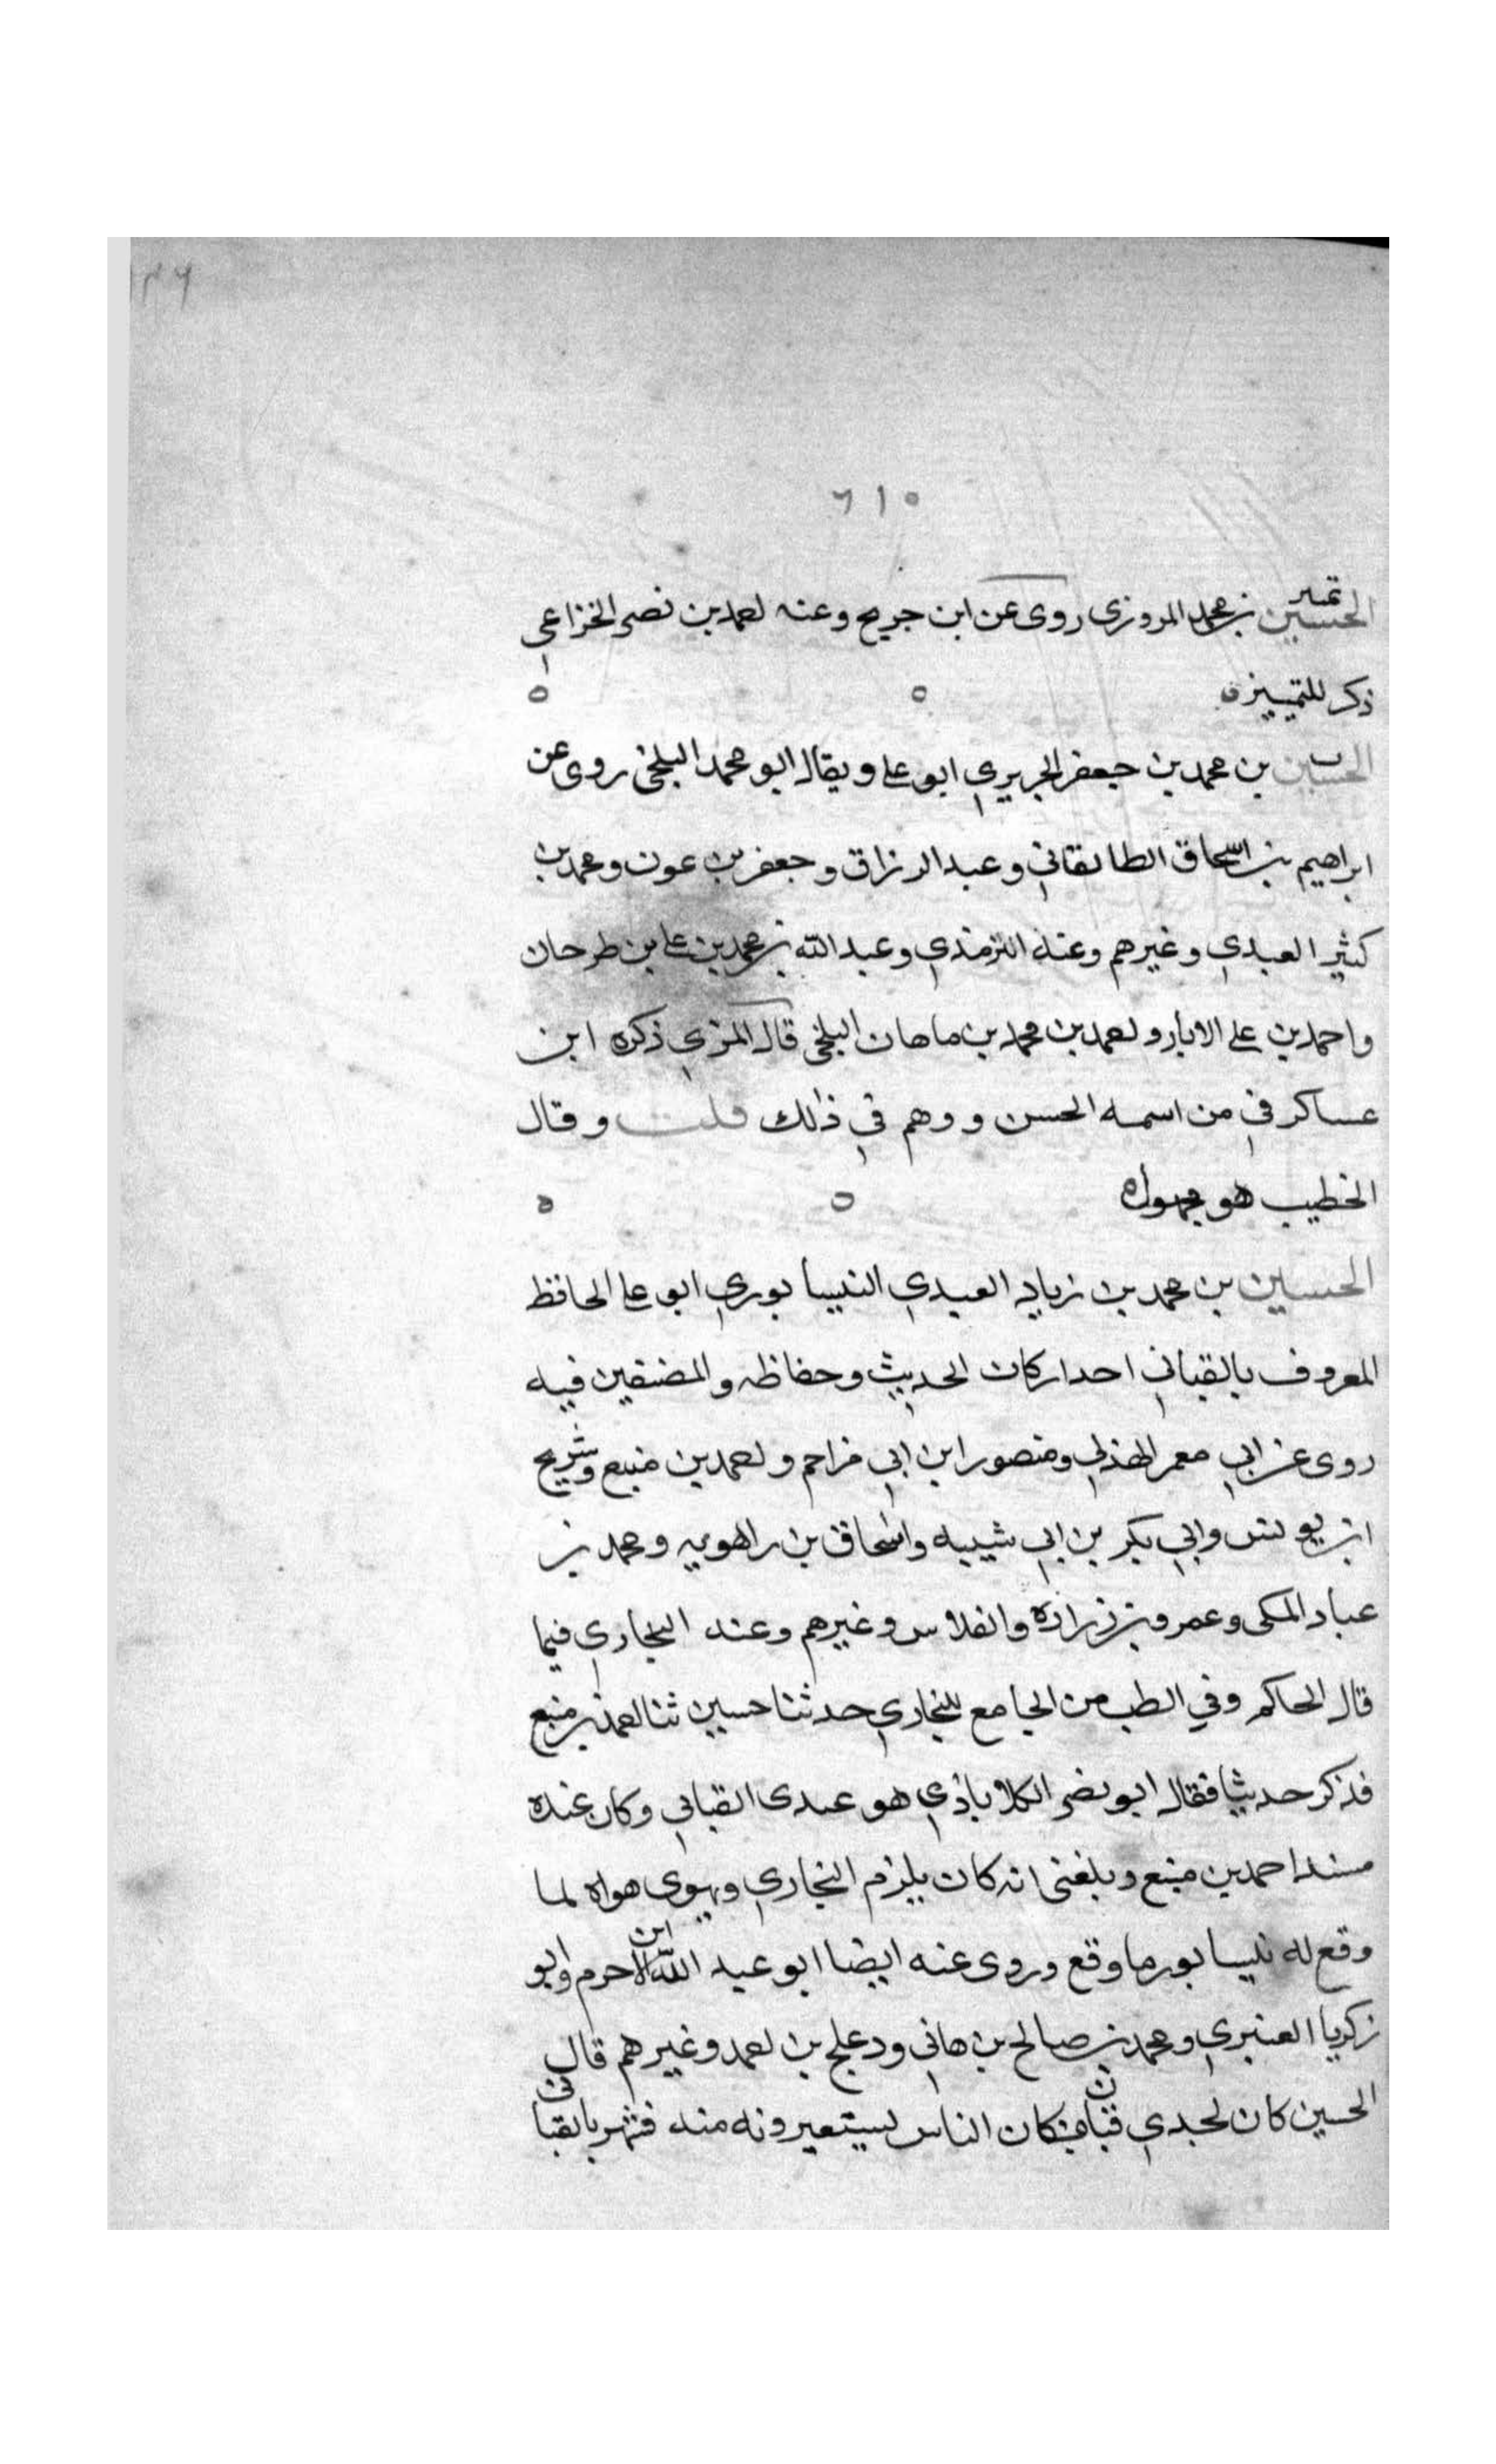 ٦١٥
تمييز
الحسين بن محمد المروزي روى عن ابن جريج وعنه احمد بن نصر الخزاعي
ذكر للتمييز ٥
الحسين بن محمد بن جعفر الجريري ابو علي ويقال ابو محمد البلخي روى عن
ابراهيم بن اسحاق الطالقاني وعبد الرزاق وجعفر بن عون ومحمد بن
كثير العبدي وغيرهم وعنه الترمذي وعبد الله بن محمد بن علي بن طرحان
واحمد بن علي الابار واحمد بن محمد بن ماهان البلخي قال المزي ذكره ابن
عساكر في من اسمه الحسن ووهم في ذلك قلت وقال
الخطيب هو مجهول ٥
الحسين بن محمد بن زياد العبدي النيسابوري ابو علي الحافظ
المعروف بالقباني احد اركان الحديث وحفاظه والمصنفين فيه
روى عن ابي معمر الهذلي ومنصور ابن ابي مزاحم واحمد بن منيع وشريح
ابن يونس وابي بكر بن ابي شيبه واسحاق بن راهويه ومحمد بن
عباد المكى وعمرو بن زرارة والفلاس وغيرهم وعنه البخاري فيما
قال الحاكم وفي الطب من الجامع للبخاري حدثنا حسين ثنا احمد بن منيع
فذكر حديثا فقال ابو نصر الكلاباذي هو عندى القباني وكان عنده
مسند احمد بن منيع وبلغنى انه كان يلزم البخاري ويهوى هواه لما
وقع له نيسابور ما وقع وروى عنه ايضا ابو عبد الله ابن الاحرم وابو
زكريا العنبري ومحمد بن صالح بن هاني ودعلج بن احمد وغيرهم قال
الحسين كان لجدي قبان فكان الناس يستعيرونه منه فشهر بالقباني